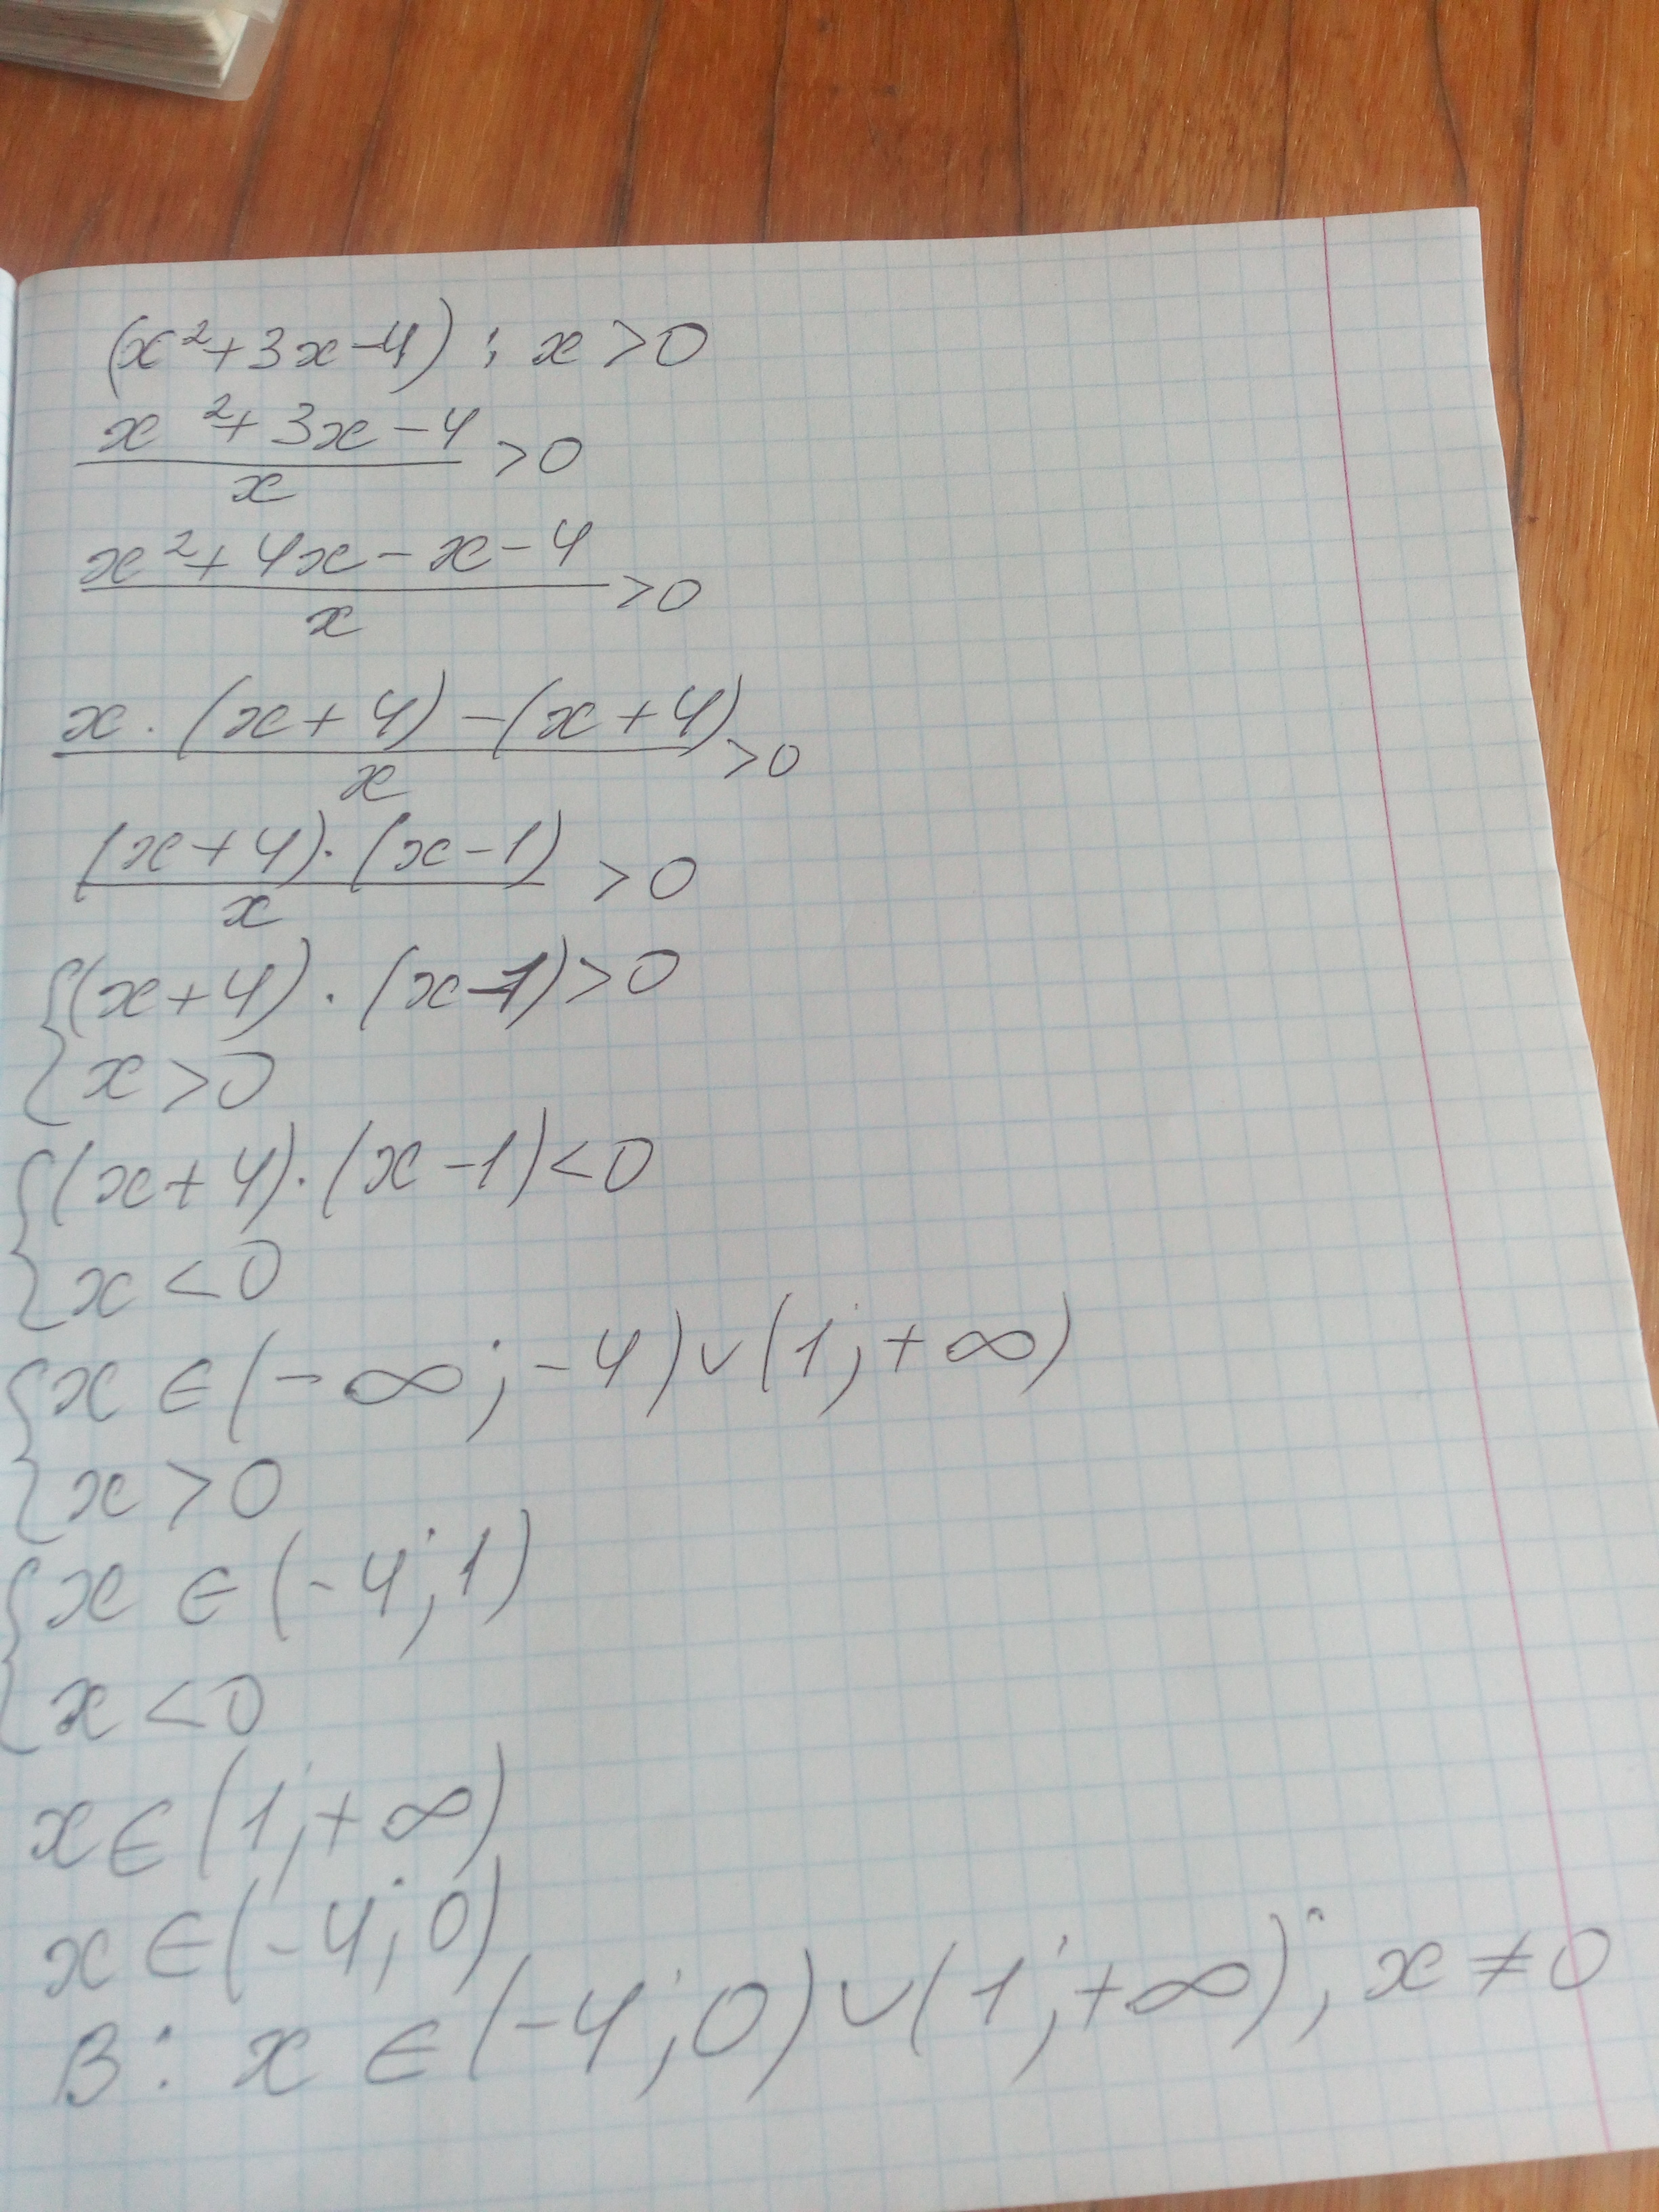 (x²+3x-4) : x>0
(x²+3x-4)/x >0
(x²+4x-x-4)/x >0
(x·(x+4)-(x+4))/x >0
((x+4)·(x-1))/x >0
{(x+4)·(x-1)>0
{x>0
{(x+4)·(x-1)<0
{x<0
{x∈(-∞;-4)∪(1;+∞)
{x>0
{x∈(-4;1)
{x<0
x∈(1;+∞)
x∈(-4;0)
В: x∈(-4;0)∪(1;+∞); x≠0